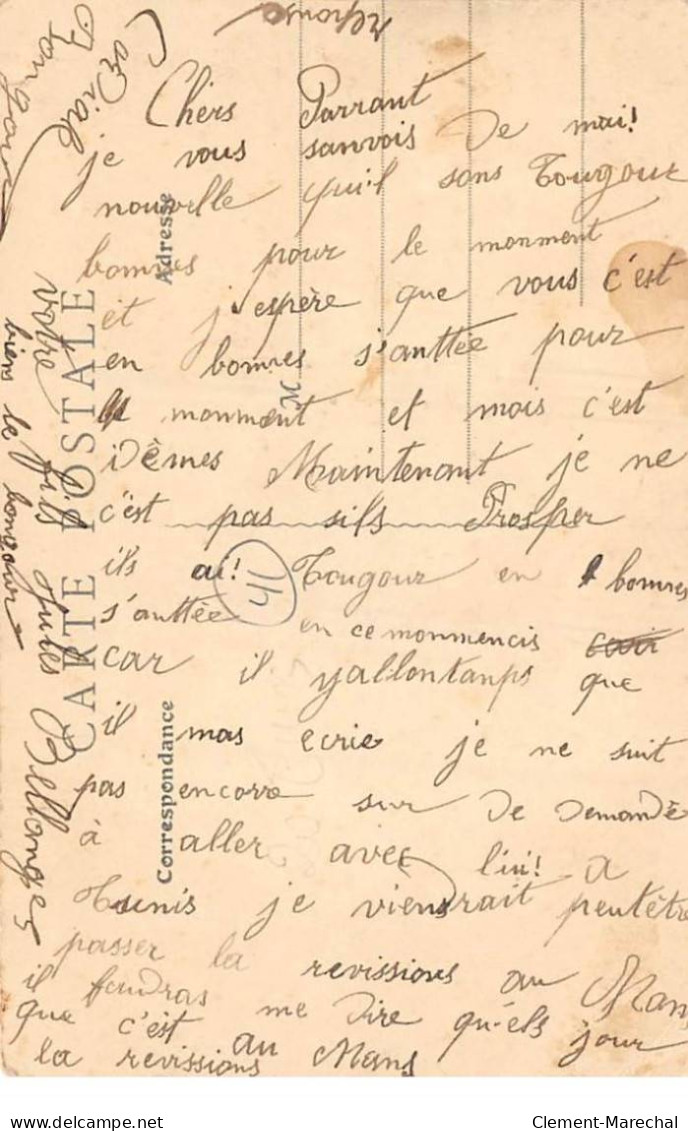 Chers Parrant
je vous sanvois de mai!
nouvelle qu'il sons Tougour
bonnes pour le monment
et j'espère que vous c'est
en bonnes s'anttée pour
le monment et mois c'est
idèmes Maintenant je ne
c'est pas sils Prosper
ils ai! Tougour en bonnes
s'anttée en ce monmencis
car il y allontanps que
il mas ecrie je ne suit
pas encorre sur de demandè
à aller avec lui! a
Tunis je viendrait peutètre
passer la revissions au Mans
il faudras me dire qu'èls jour
que c'est au
la revissions Mans
votre fils Jules Bellanger
biens le bonjour
Bonjour
CARTE POSTALE
Correspondance
Adresse
14
delcampe.net
Clement-Marechal